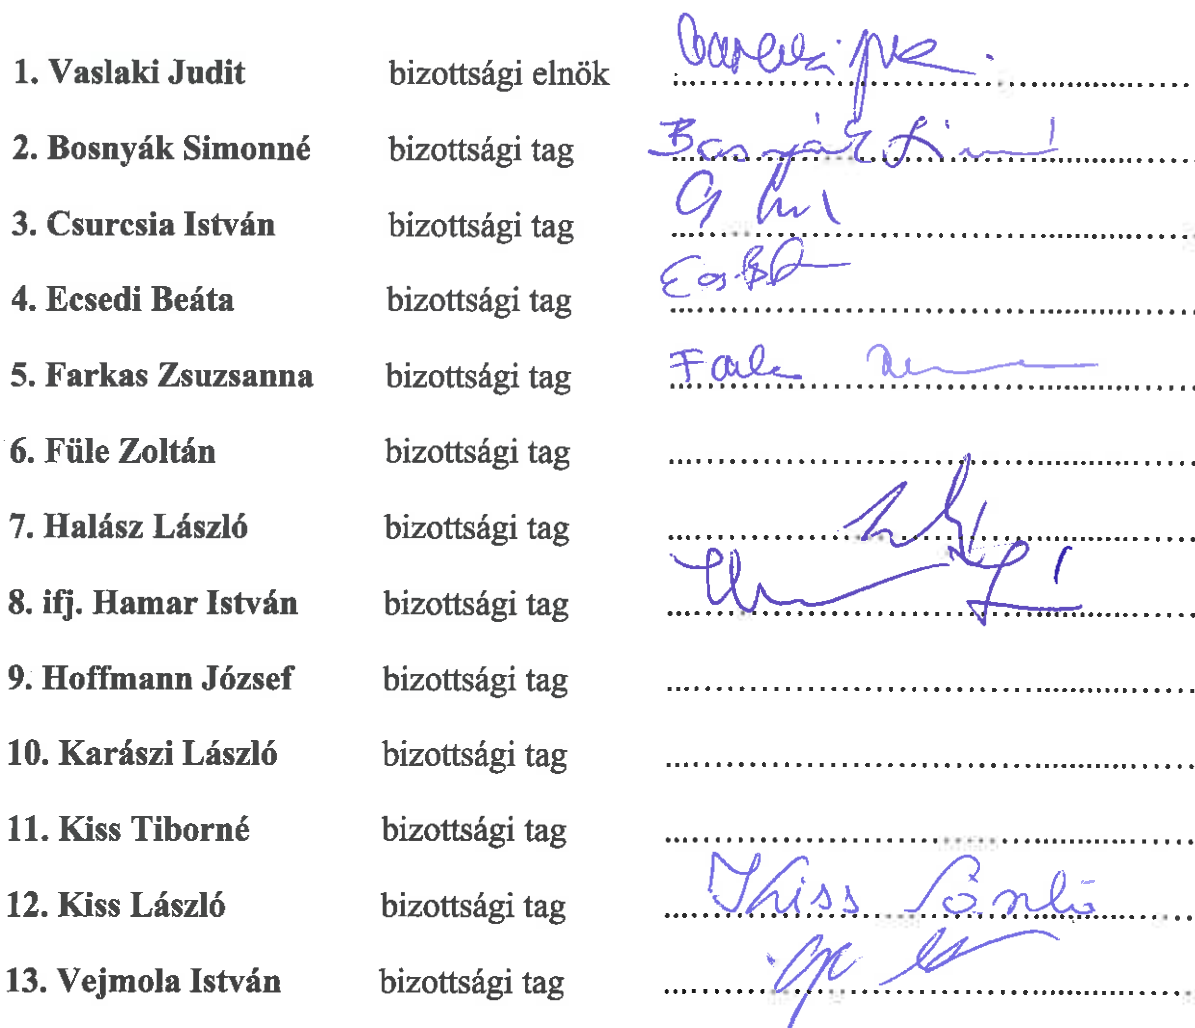 1. Vaslaki Judit bizottsági elnök
2. Bosnyák Simonné bizottsági tag Bosnyák
3. Csurcsia István bizottsági tag
4. Ecsedi Beáta bizottsági tag
5. Farkas Zsuzsanna bizottsági tag
6. Füle Zoltán bizottsági tag
7. Halász László bizottsági tag
8. ifj. Hamar István bizottsági tag
9. Hoffmann József bizottsági tag
10. Karászi László bizottsági tag
11. Kiss Tiborné bizottsági tag
12. Kiss László bizottsági tag Kiss
13. Vejmola István bizottsági tag